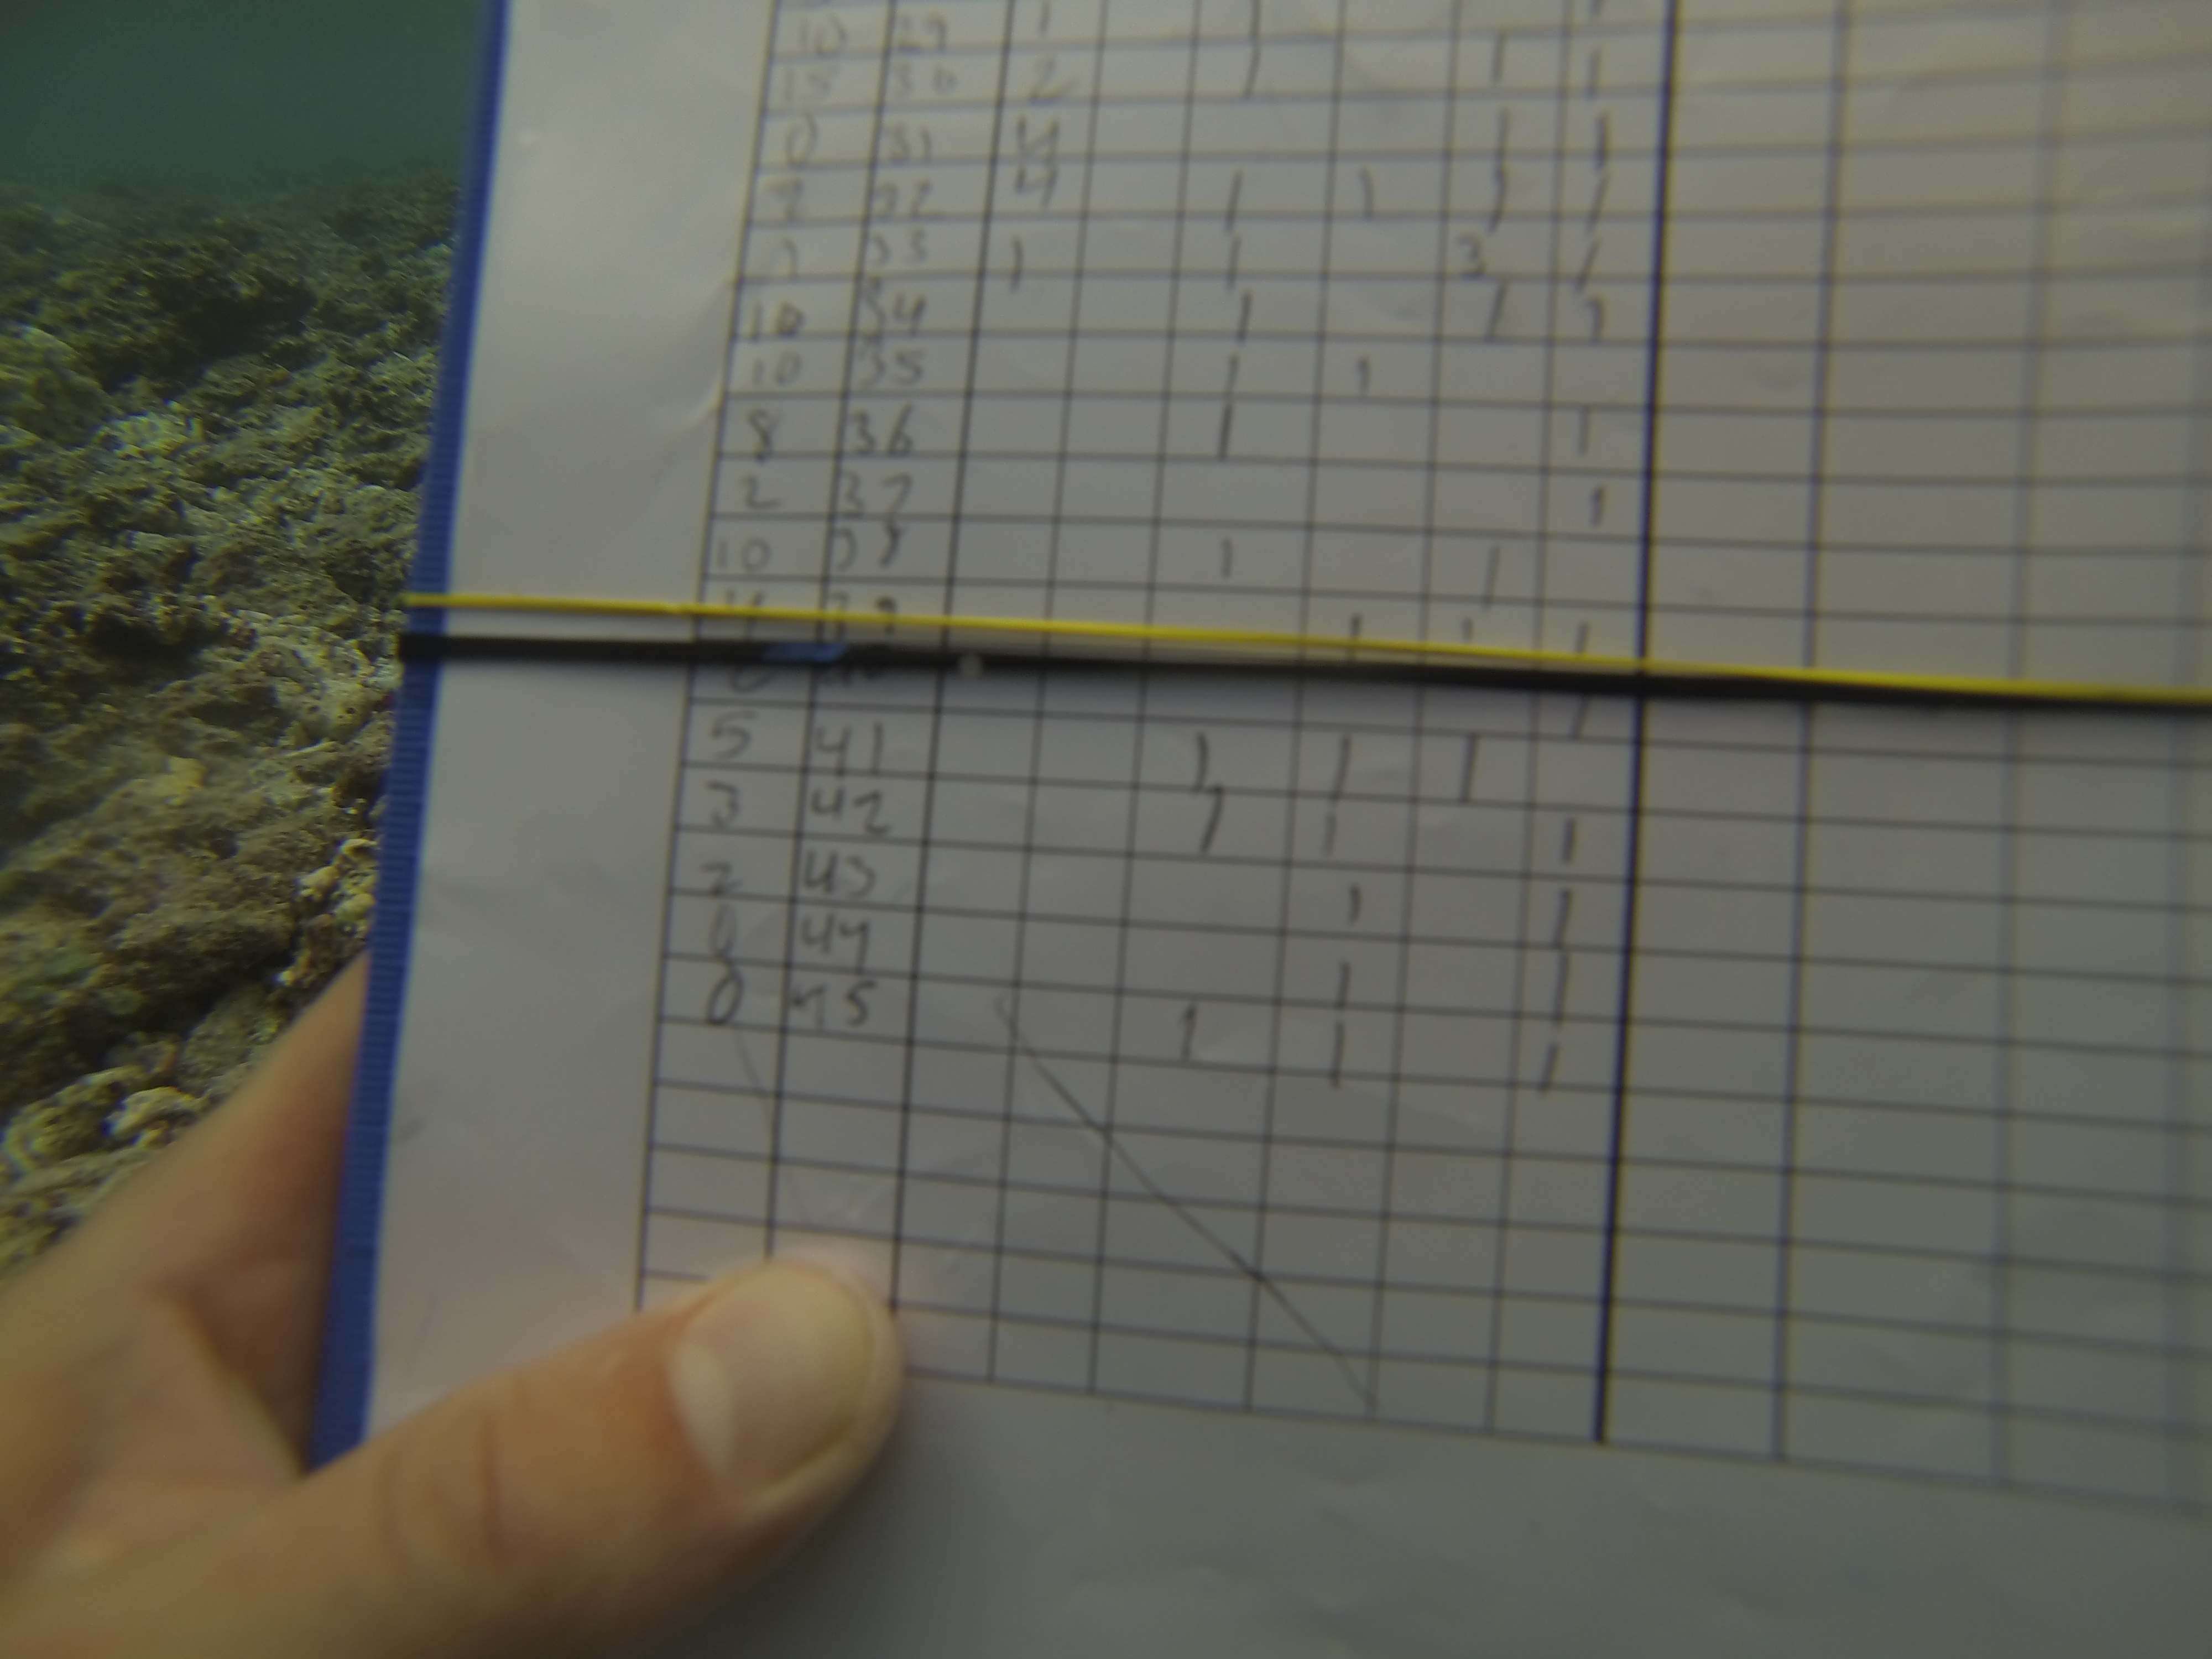 10 29 1 1
15 30 2 1 1 1
0 31 4 1 1
2 32 4 1 1 1 1
33 1 1 3 1
10 34 1 1 1
10 35 1 1
8 36 1 1
2 37 1
10 38 1 1
39 1 1 1
40 1
5 41 1 1 1
3 42 1 1 1
2 43 1 1
0 44 1 1
0 45 1 1 1